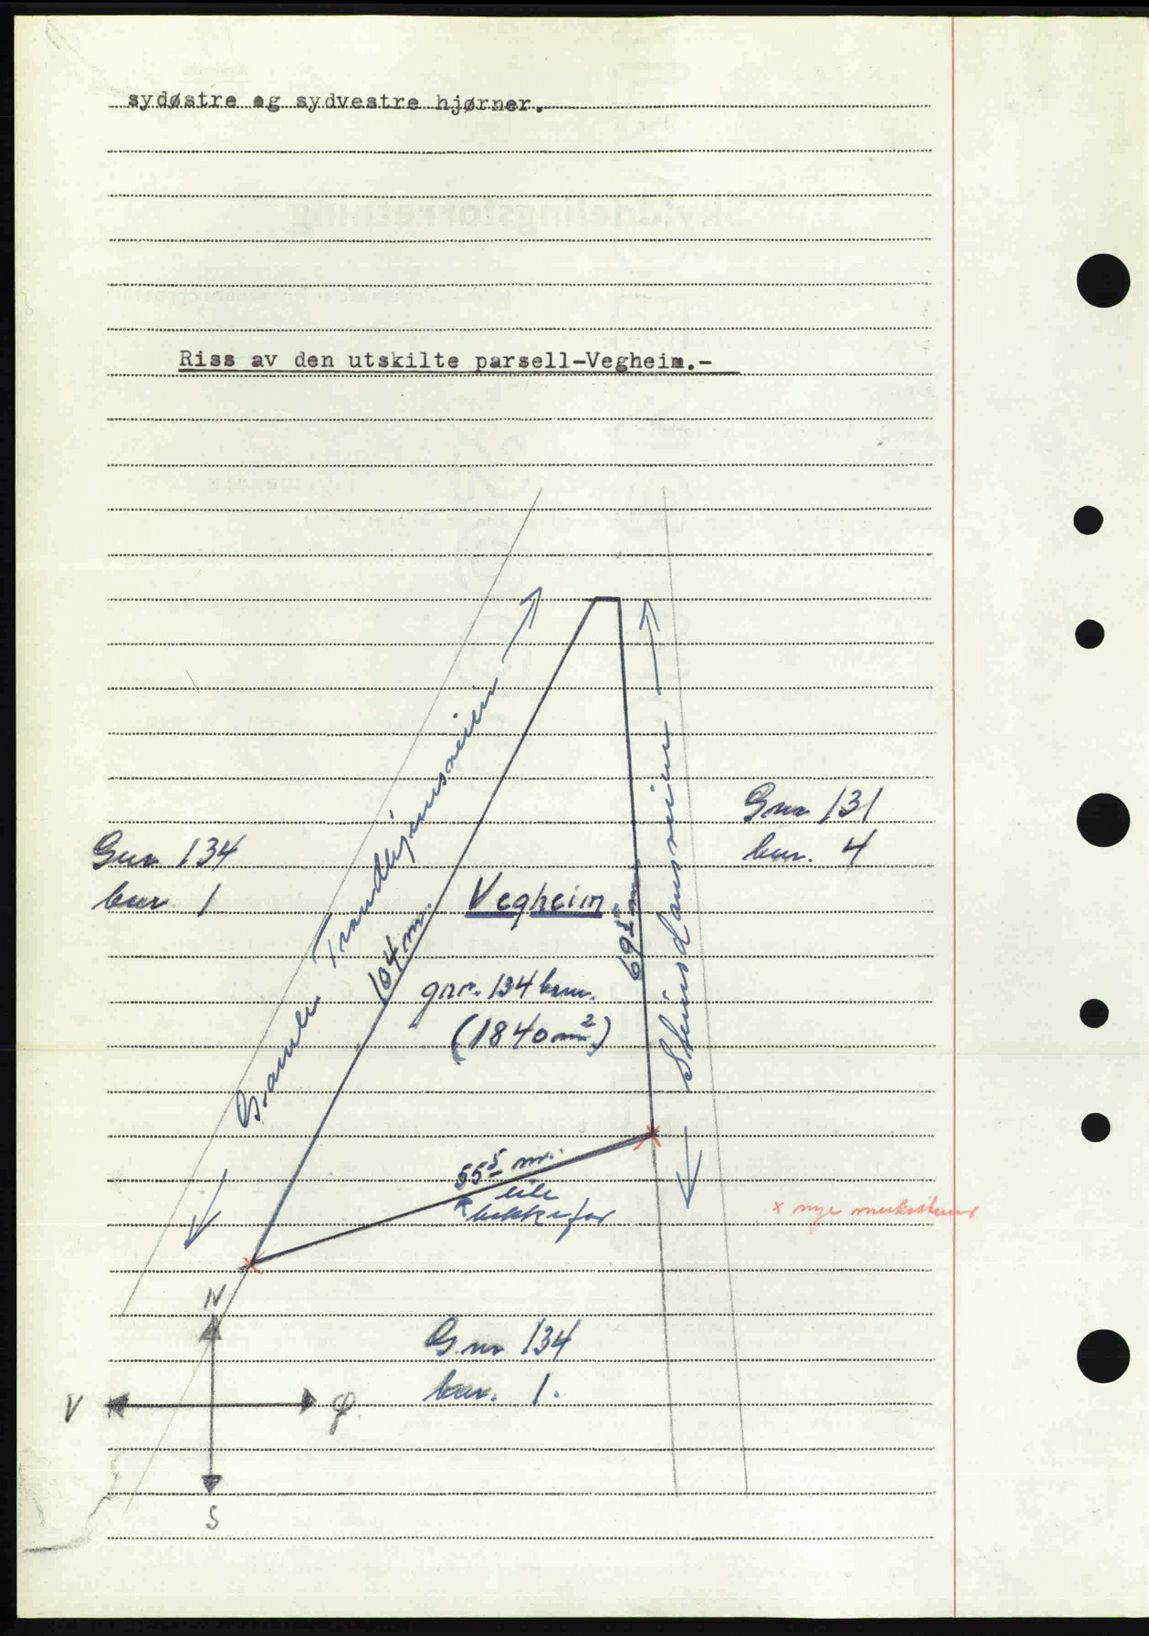 sydøstre og sydvestre hjørner.
Riss av den utskilte parsell-Vegheim.-
Gamle Trondhjemsveien
Gnr 131
bnr. 4
Gnr 134
bnr 1
Vegheim
104 m.
69⁵ m
gnr. 134 bnr.
(1840 m²)
55⁵ m.
x nye merkesteiner
N
Gnr 134
bnr. 1.
V
Ø
S